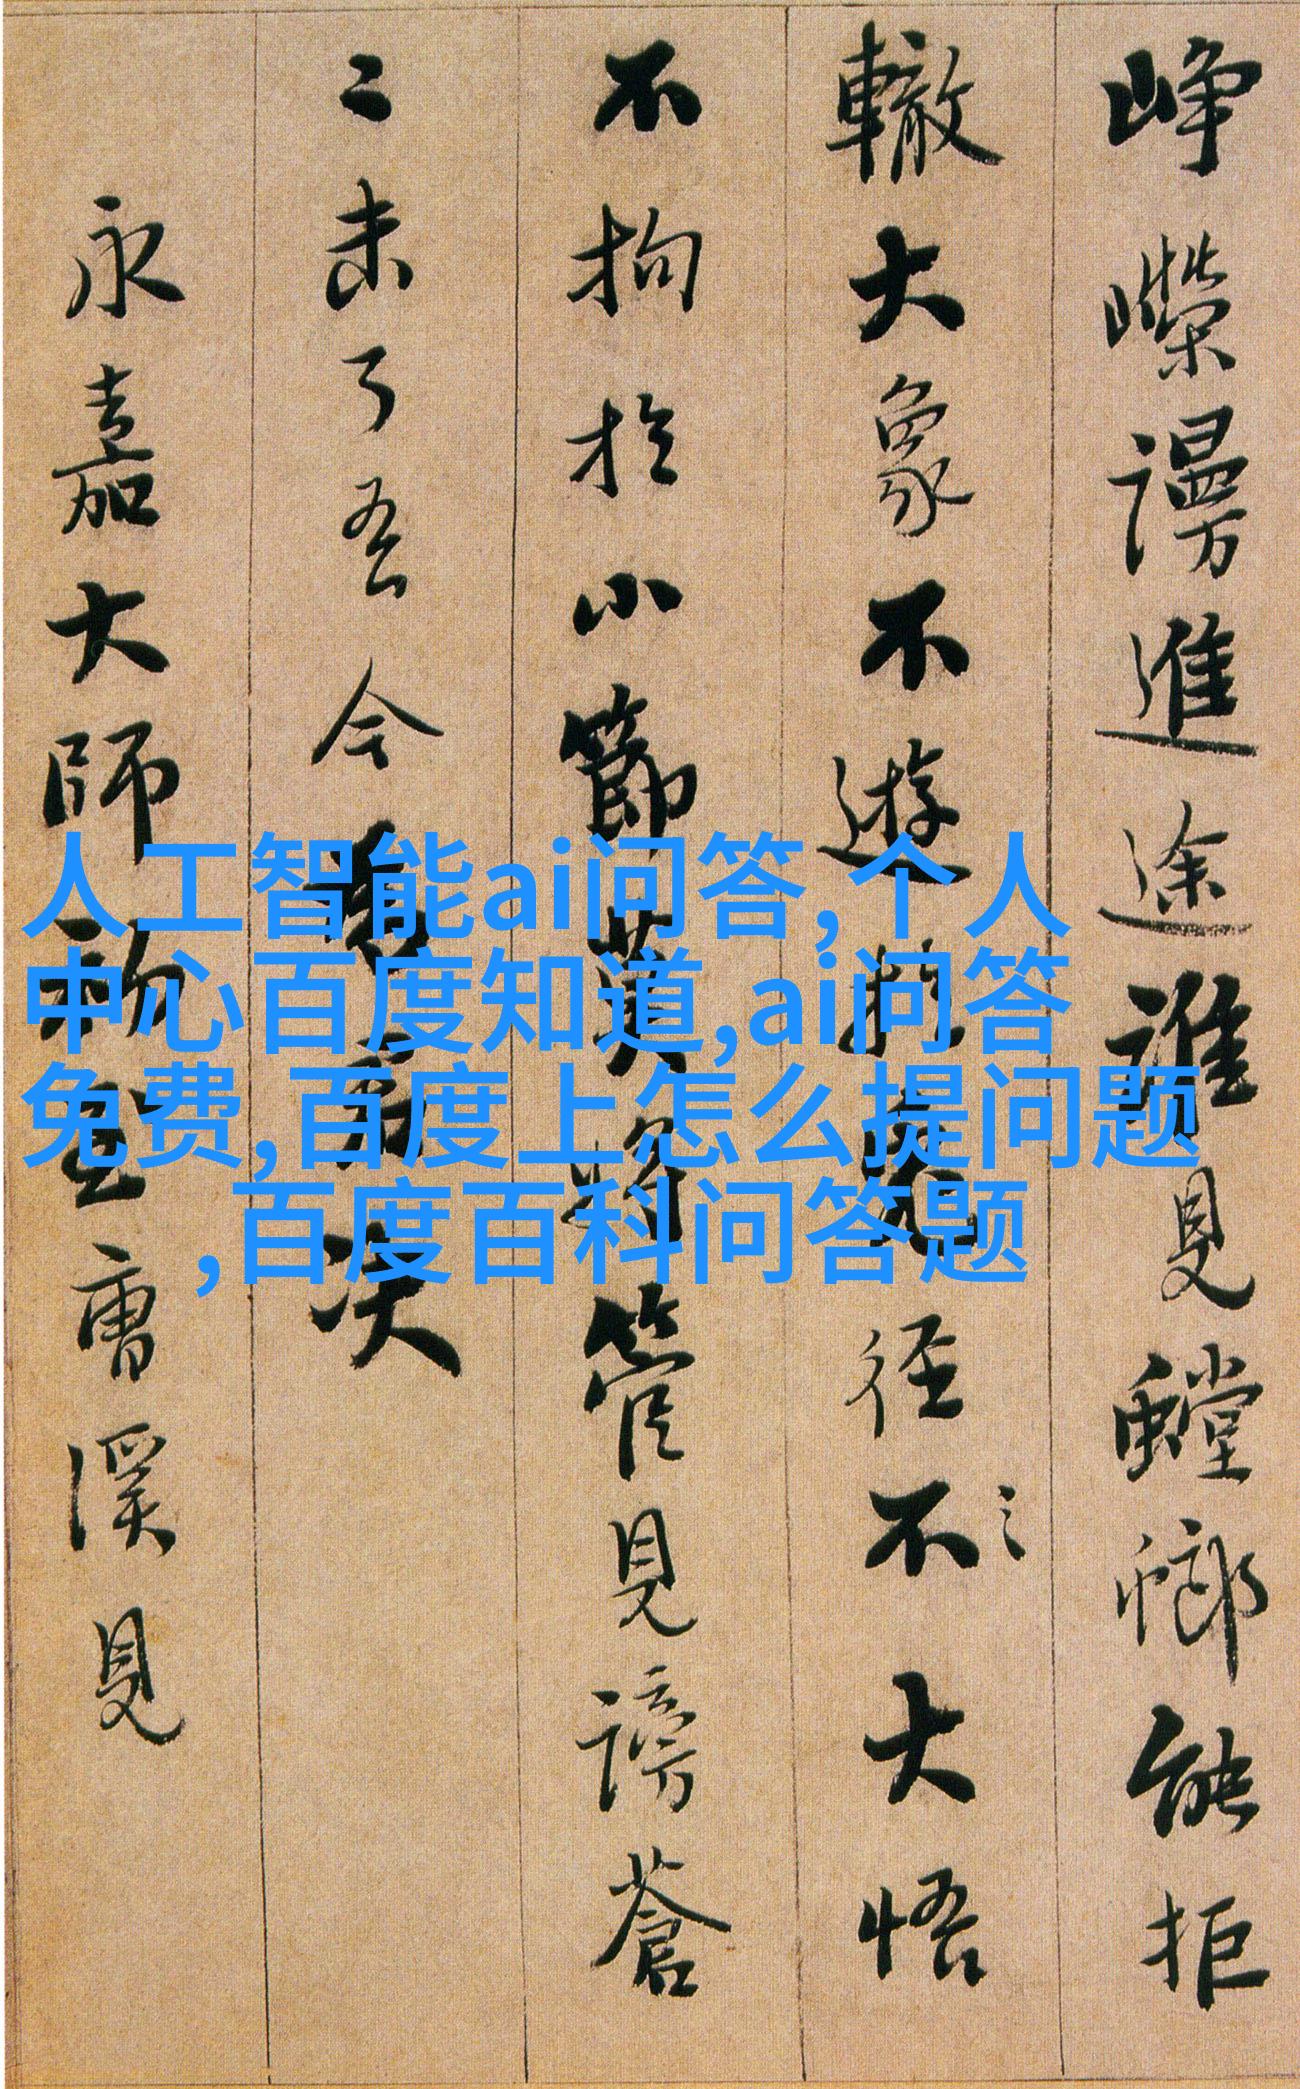 峥嵘謾進途誰見螳螂能拒
轍大象不遊於兔径不大悟
不拘於小節莫将管見謗蒼
二未了吾今
永嘉大師初至曹溪見
人工智能ai问答,个人
中心百度知道,ai问答
免费,百度上怎么提问题
,百度百科问答题